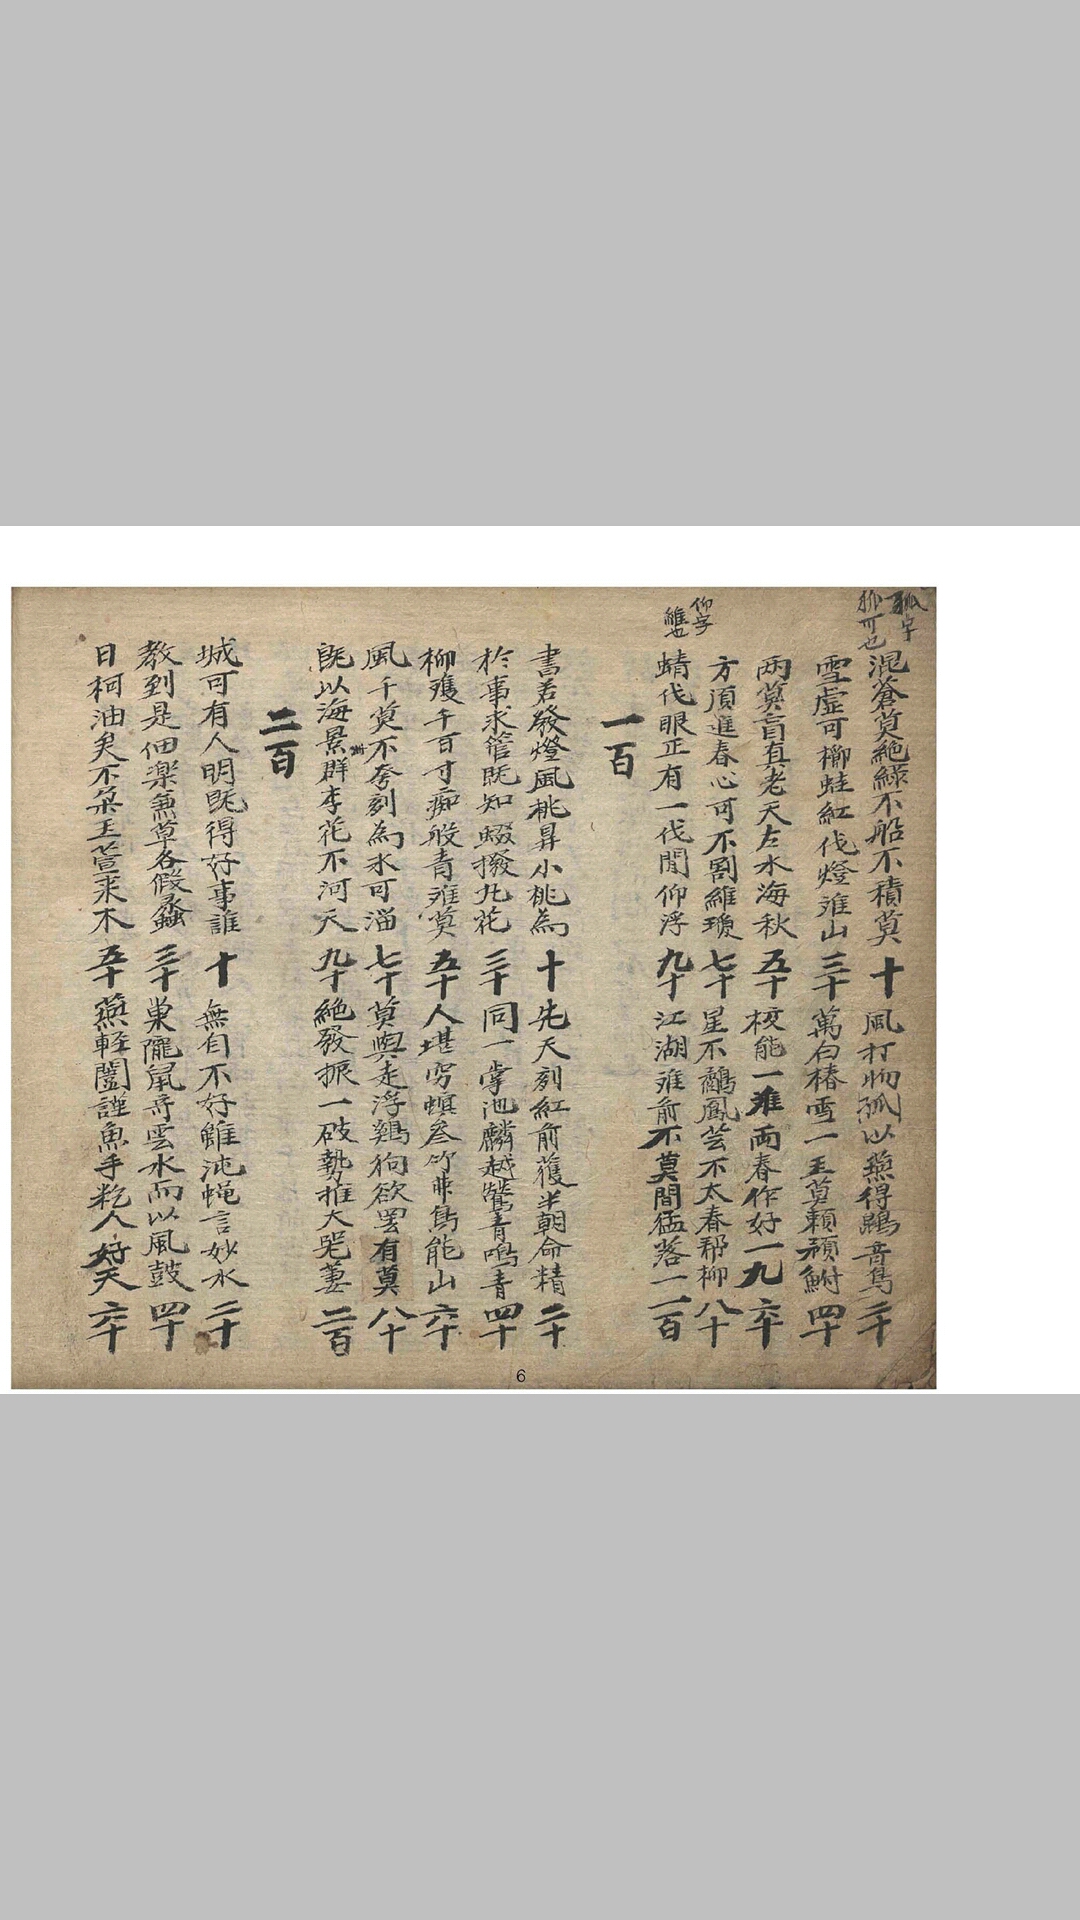 狐字
狐可也
混蒼莫絶緑不船不積莫 十 風打物狐以燕得鵑音鳥 二十
雪虚可柳蛙紅伐燈進山 三十 萬白椿雪一王莫頼頑鮒 四十
両莫盲真老天左水海秋 五十 桜能一進両春作好一九 六十
方頂進春心可不割維瓊 七十 星不鷸鳳芸不太春那柳 八十
仰字
雖也
蜻伐眼正有一伐閒仰浮 九十 江湖進前不莫間猛落一 一百
一百
書若發燈風桃昇小桃為 十 先天刻紅前獲半朝命精 二十
於事求管既知蝦撥九花 三十 同一掌池麟越鶯青鳴青 四十
柳獲千百寸痴般青進莫 五十 人堪穷蜞叄竹非鳥能山 六十
風千莫不夸刻為水可淄 七十 莫與走浮鷄狗欲罢有莫 八十
既以海景群李花不河天 九十 絶發振一破勢推大咒萋 二百
二百
城可有人明既得好事誰 十 無自不好雖沌蝇言妙水 二十
教到是佃楽兼草各假蟲 三十 巣隴鼠奇雲水而以風鼓 四十
日柯油矣不朶王萱乗木 五十 燕軽闔謹魚手乾人好天 六十
6